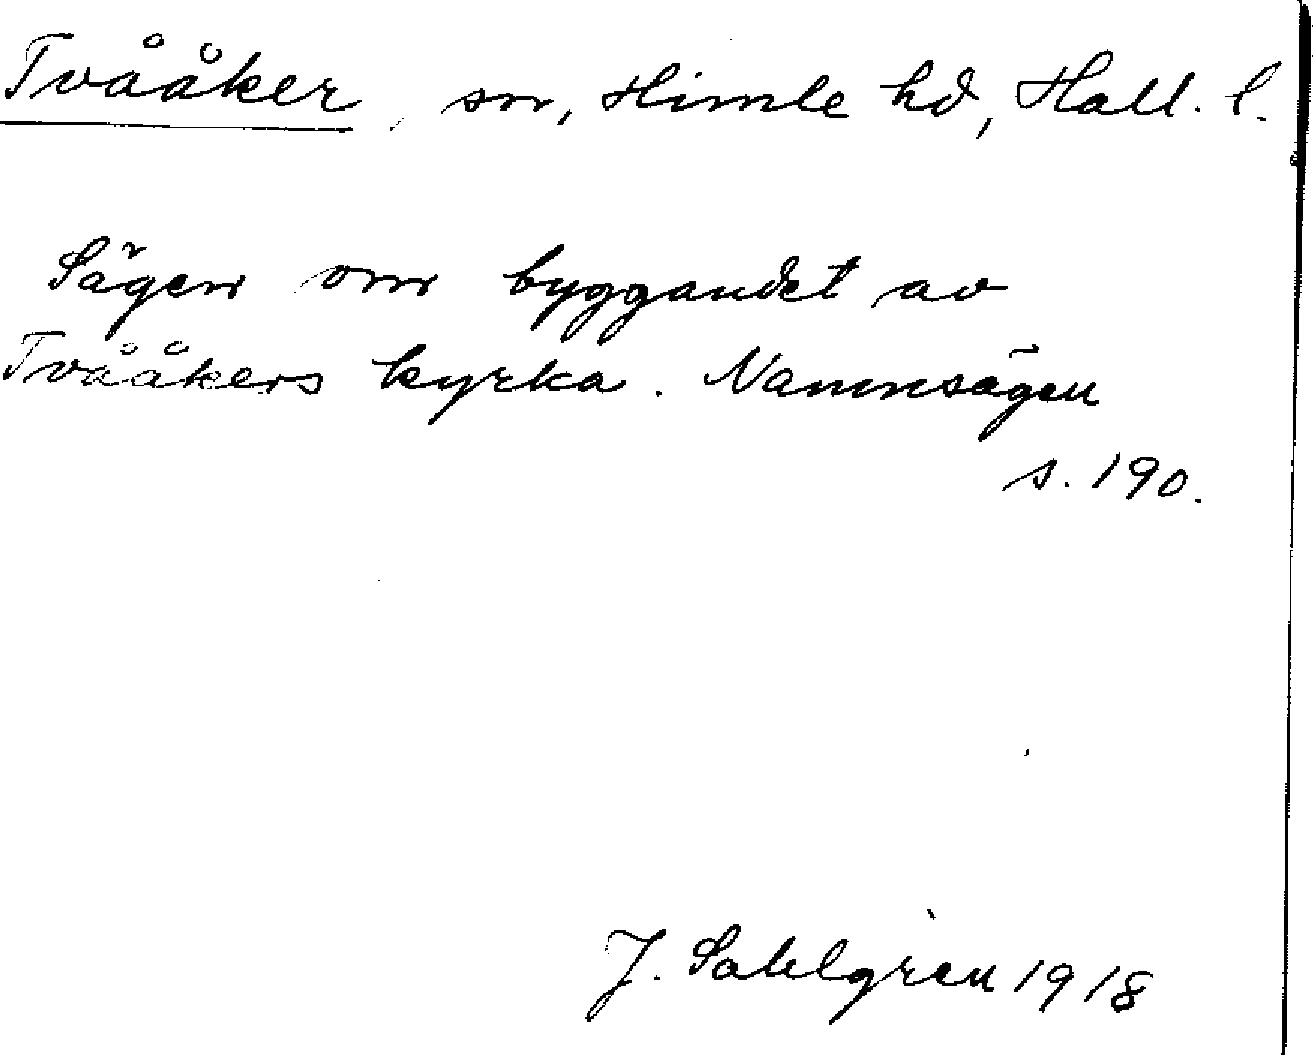 Tvååker, sn, Himle hd, Hall. l.
Sägen om byggandet av
Tvååkers kyrka. Namnsägen
s. 190.
J. Sahlgren 1918